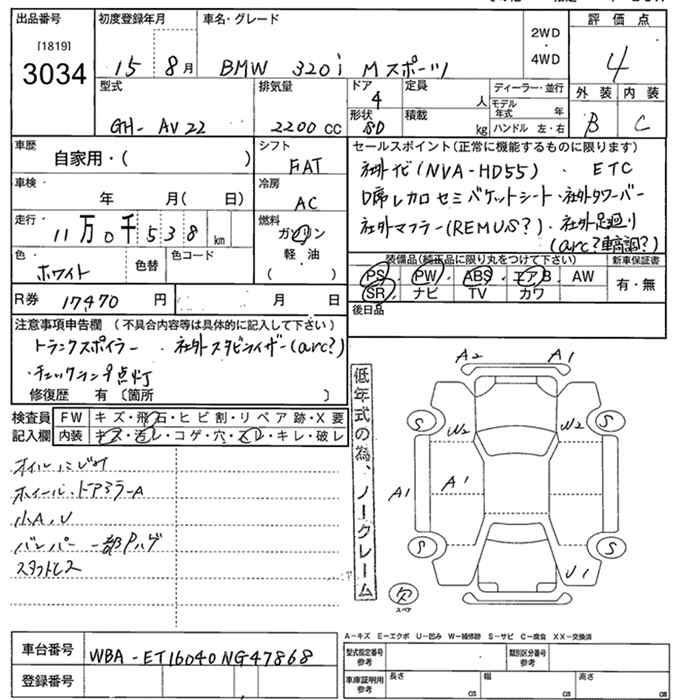 出品番号 初度登録年月 車名・グレード 2WD ・ 4WD 評価点
[1819]
3034 15 8月 BMW 320i Mスポーツ 4
型式 排気量 ドア 4 定員 人 ディーラー・並行 外装 内装
モデル年式 年
GH- AV22 2200 CC 形状 SD 積載 kg ハンドル 左・右 B C
車歴 シフト セールスポイント(正常に機能するものに限ります)
自家用・( ) FAT 社外ナビ(NVA-HD55) ・ ETC
車検 冷房
年 月( 日) AC D席レカロセミバケットシート・社外タワーバー
走行 燃料 社外マフラー(REMUS?)・社外足廻り
11万0千538km ガソリン (arc?車高調?)
色 色替 色コード 軽・油 装備品(純正品に限り丸をつけて下さい) 新車保証書
ホワイト ( ) PS PW ABS エアB AW 有・無
R券 17470 円 年 月 日 SR ナビ TV カワ
注意事項申告欄 (不具合内容等は具体的に記入して下さい) 後日品
トランクスポイラー ・ 社外スタビライザー(arc?)
・チェックランプ点灯
修復歴 有 〔箇所 〕
検査員 FW キズ・飛石・ヒビ割・リペア跡・X要
記入欄 内装 キズ・汚レ・コゲ・穴・スレ・キレ・破レ
オイルにじみ
ホイール・ドアミラーA
小A、U
バンパー一部Pハゲ
スタットレス
低年式の為、ノークレーム
A2 A1
S S
W2 W2
A1 A1
S S
U1
欠
スペア
A-キズ E-エクボ U-凹み W-補修跡 S-サビ C-腐食 XX-交換済
車台番号 WBA-ET16040NG47868
型式指定番号 参考 類別区分番号 参考
登録番号
車庫証明用 参考 長さ cm 幅 cm 高さ cm